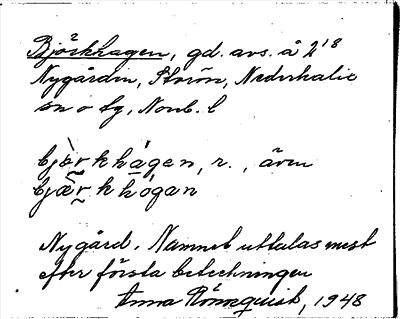 Björkhagen, gd. avs. å 2¹⁸
Nygården, Storön, Nederkalix
sn o tg, Norrb. l
bjò̤rkhágen, r., även
bjæ̀r̤khógan
Nygård. Namnet uttalas mest
efter första beteckningen
Anna Rönnquist, 1948